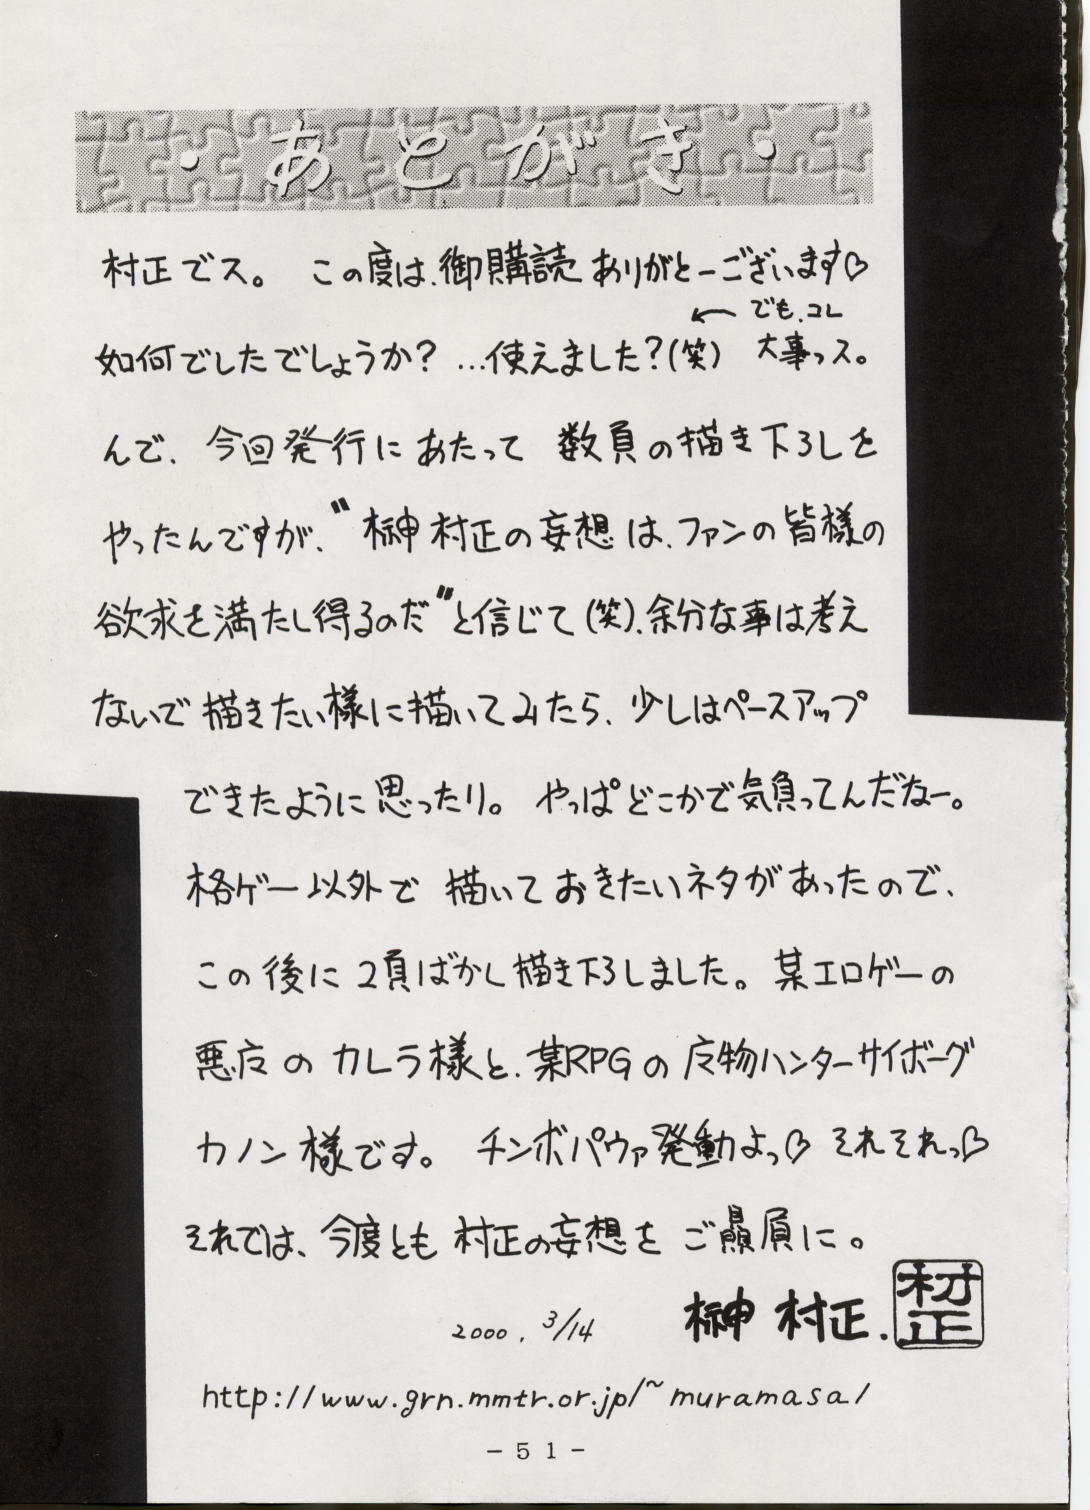 ・あとがき・
村正でス。 この度は、御購読ありがとーございます♡
←でも、コレ
如何でしたでしょうか? …使えました?(笑) 大事っス。
んで、今回発行にあたって 数頁の描き下ろしを
やったんですが、〝榊 村正の妄想は、ファンの皆様の
欲求を満たし得るのだ〟と信じて(笑)、余分な事は考え
ないで描きたい様に描いてみたら、少しはペースアップ
できたように思ったり。 やっぱどこかで気負ってんだなー。
格ゲー以外で 描いておきたいネタがあったので、
この後に2頁ばかし描き下ろしました。某エロゲーの
悪广のカレラ様と、某RPGの广物ハンターサイボーグ
カノン様です。 チンボパウァ発動よっ♡ それそれっ♡
それでは、今度とも村正の妄想をご贔屓に。
榊 村正. 村正
2000. 3/14
http://www.grn.mmtr.or.jp/~muramasa/
-51-